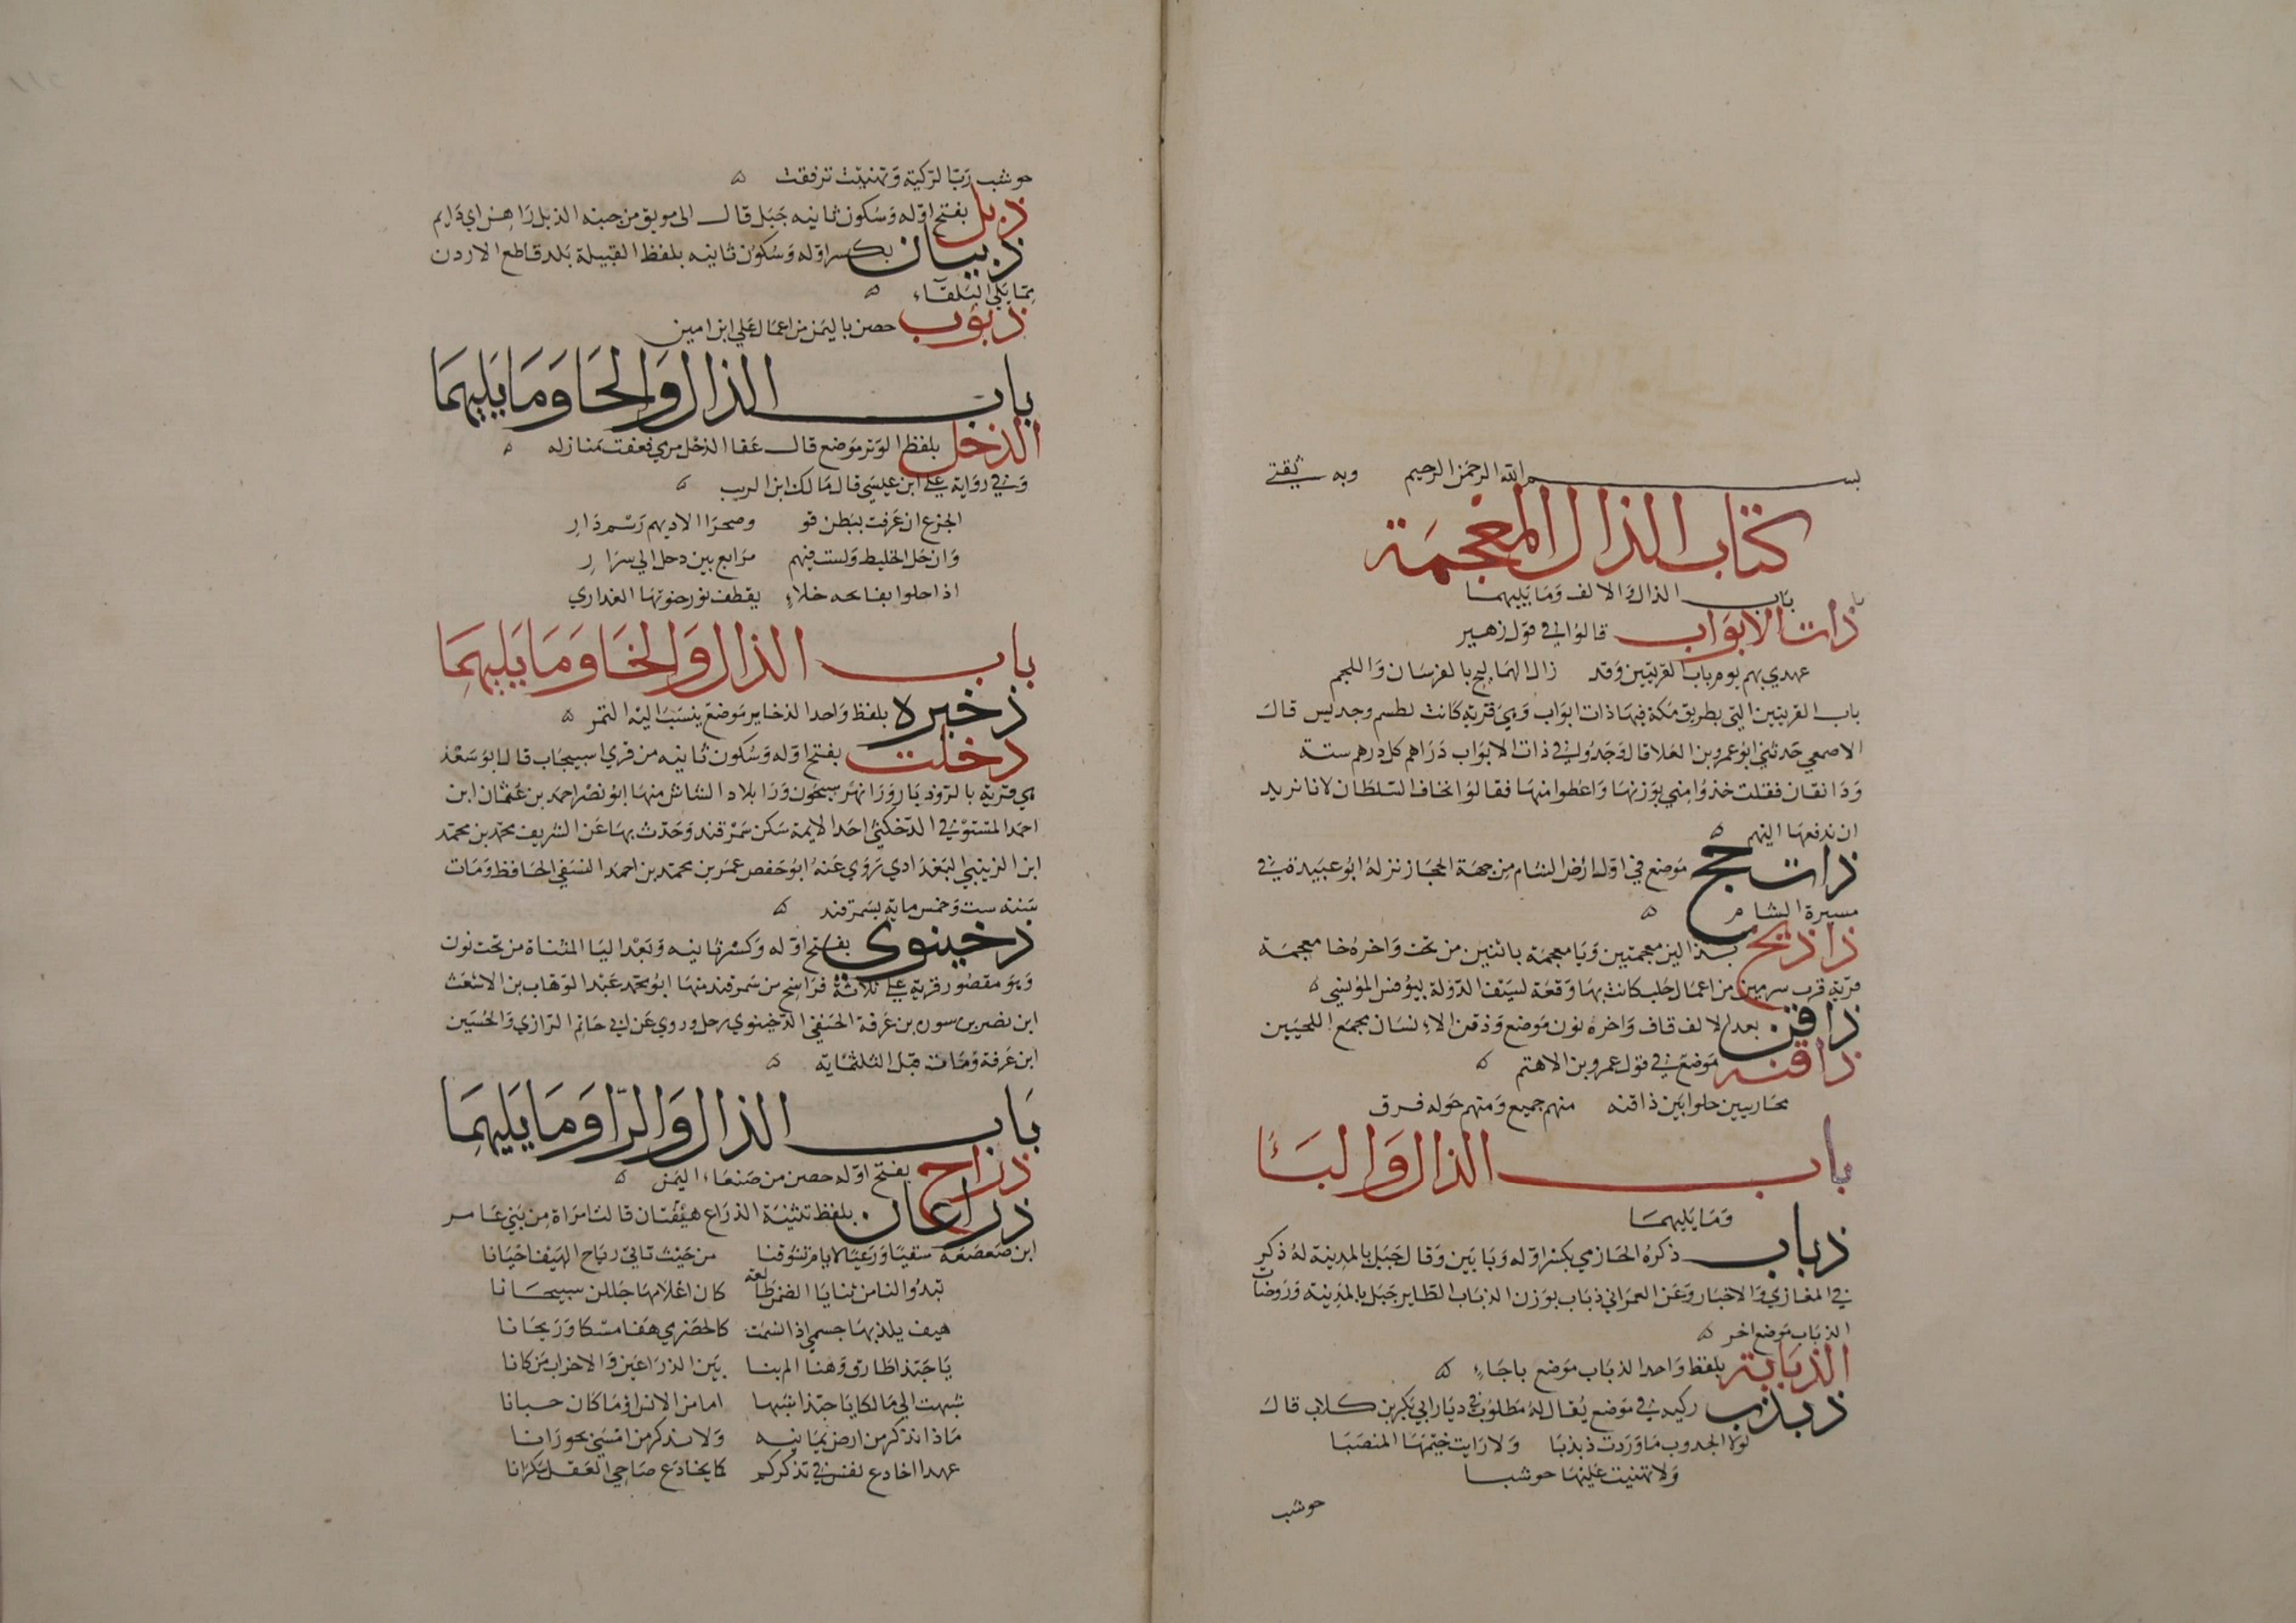 بســـم الله الرحمن الرحيم وبه ثقتي
كتاب الذال المعجمة
باب الذال والالف وما يليهما
ذات الابواب قالوا في قول زهير
عهدي بهم يوم باب القريتين وقد زال الهماليج بالفرسان واللجم
باب القريتين التي بطريق مكة فيها ذات ابواب وهي قرية كانت لطسم وجديس قال
الاصمعي حدثني ابو عمرو بن العلا قال وجدوا في ذات الابواب دراهم كل درهم ستة
ودانقان فقلت خذوا مني بوزنها واعطوا منها فقالوا نخاف السلطان لانا نريد
ان ندفعها اليهم
ذات حج موضع في اول ارض الشام من جهة الحجاز نزله ابو عبيدة في
مسيرة الشام
ذاذيخ بذالين معجمتين ويا معجمة باثنين من تحت واخره خا معجمة
قرية قرب سرمين من اعمال حلب كانت بها وقعة لسيف الدولة بيونس المونسي
ذاقن بعد الالف قاف واخره نون موضع وذقن الانسان مجمع اللحيين
ذاقنه موضع في قول عمرو بن الاهتم
محاربيين حلوا بين ذاقنه منهم جميع ومنهم حوله فرق
باب الذال والبا
وما يليهما
ذباب ذكره الحازمي بكسر اوله وبا بين وقال جبل بالمدينة له ذكر
في المغازي والاخبار وعن العمراني ذباب بوزن الذباب الطاير جبل بالمدينة وروضات
الذباب موضع اخر
الذبابة بلفظ واحد الذباب موضع باجاء
ذبذب ركيه في موضع يقال له مطلوب في ديار ابي بكر بن كلاب قال
لولا الجدوب ما وردت ذبذبا ولا رايت خيمها المنصبا
ولا تهنيت عليها حوشبا
حوشب
حوشب رب الركية وتهنيت ترفقت
ذبل بفتح اوله وسكون ثانيه جبل قال الى موبق من جنبه الذبل راهن اي دايم
ذبيان بكسر اوله وسكون ثانيه بلفظ القبيلة بلد قاطع الاردن
مما يلي البلقاء
ذبوب حصن باليمن من اعمال علي ابن امين
باب الذال والحا وما يليهما
الذحل بلفظ الوتر موضع قال عفا الذحل مري فعفت منازله
وفي رواية علي ابن عيسي قال مالك ابن الريب
الجزع ان عرفت ببطن قو وصحرا الاديهم رسم دار
وان حل الخليط ولست فيهم مرابع بين دحل الي سرار
اذا حلوا بفايحه خلاء يقطف نور حنوتها العذاري
باب الذال والخا وما يليهما
ذخيره بلفظ واحد الذخاير موضع ينسب اليه التمر
دخلت بفتح اوله وسكون ثانيه من قري اسبيجاب قال ابو سعد
هي قرية بالرود بار ورا نهر سيحون ورا بلاد الشاش منها ابو نصر احمد بن عثمان ابن
احمد المستوفي الدخكثي احد الايمة سكن سمرقند وحدث بها عن الشريف محمد بن محمد
ابن الزينبي البغدادي روي عنه ابو حفص عمر بن محمد بن احمد النسفي الحافظ ومات
سنة ست وخمس ماية بسمرقند
ذخينوي بفتح اوله وكسر ثانيه وبعد اليا المثناة من تحت نون
وهو مقصور قرية علي ثلاثة فراسخ من سمرقند منها ابو محمد عبد الوهاب بن الاشعث
ابن نصر بن سوره بن عرفة الحنفي الذخينوي رحل وروي عن ابي حاتم الرازي والحسين
ابن عرفة ومات قبل الثلثماية
باب الذال والرا وما يليهما
ذراح بفتح اوله حصن من صنعاء اليمن
ذراعان بلفظ تثنية الذراع هضبتان قالت امراة من بني عامر
ابن صعصعة سقيا ورعيا لايام تشوقنا من حيث تاتي رياح الهيف احيانا
تبدو لنا من ثنايا الضمر طالعة كان اعلامها جللن سبيحانا
هيف يلذ بها جسمي اذا نسمت كالحضرمي هفا مسكا وريحانا
يا حبذا طارق وهنا الم بنا بين الذراعين والاخراب من كانا
شبهت الي مالكا يا حبذا شبها اما من الانس او ما كان حسبانا
ماذا تذكر من ارض يمانيه ولا تذكر من امسي بحورانا
عمدا اخادع نفسي في تذكركم كما يخادع صاحي العقل سكرانا